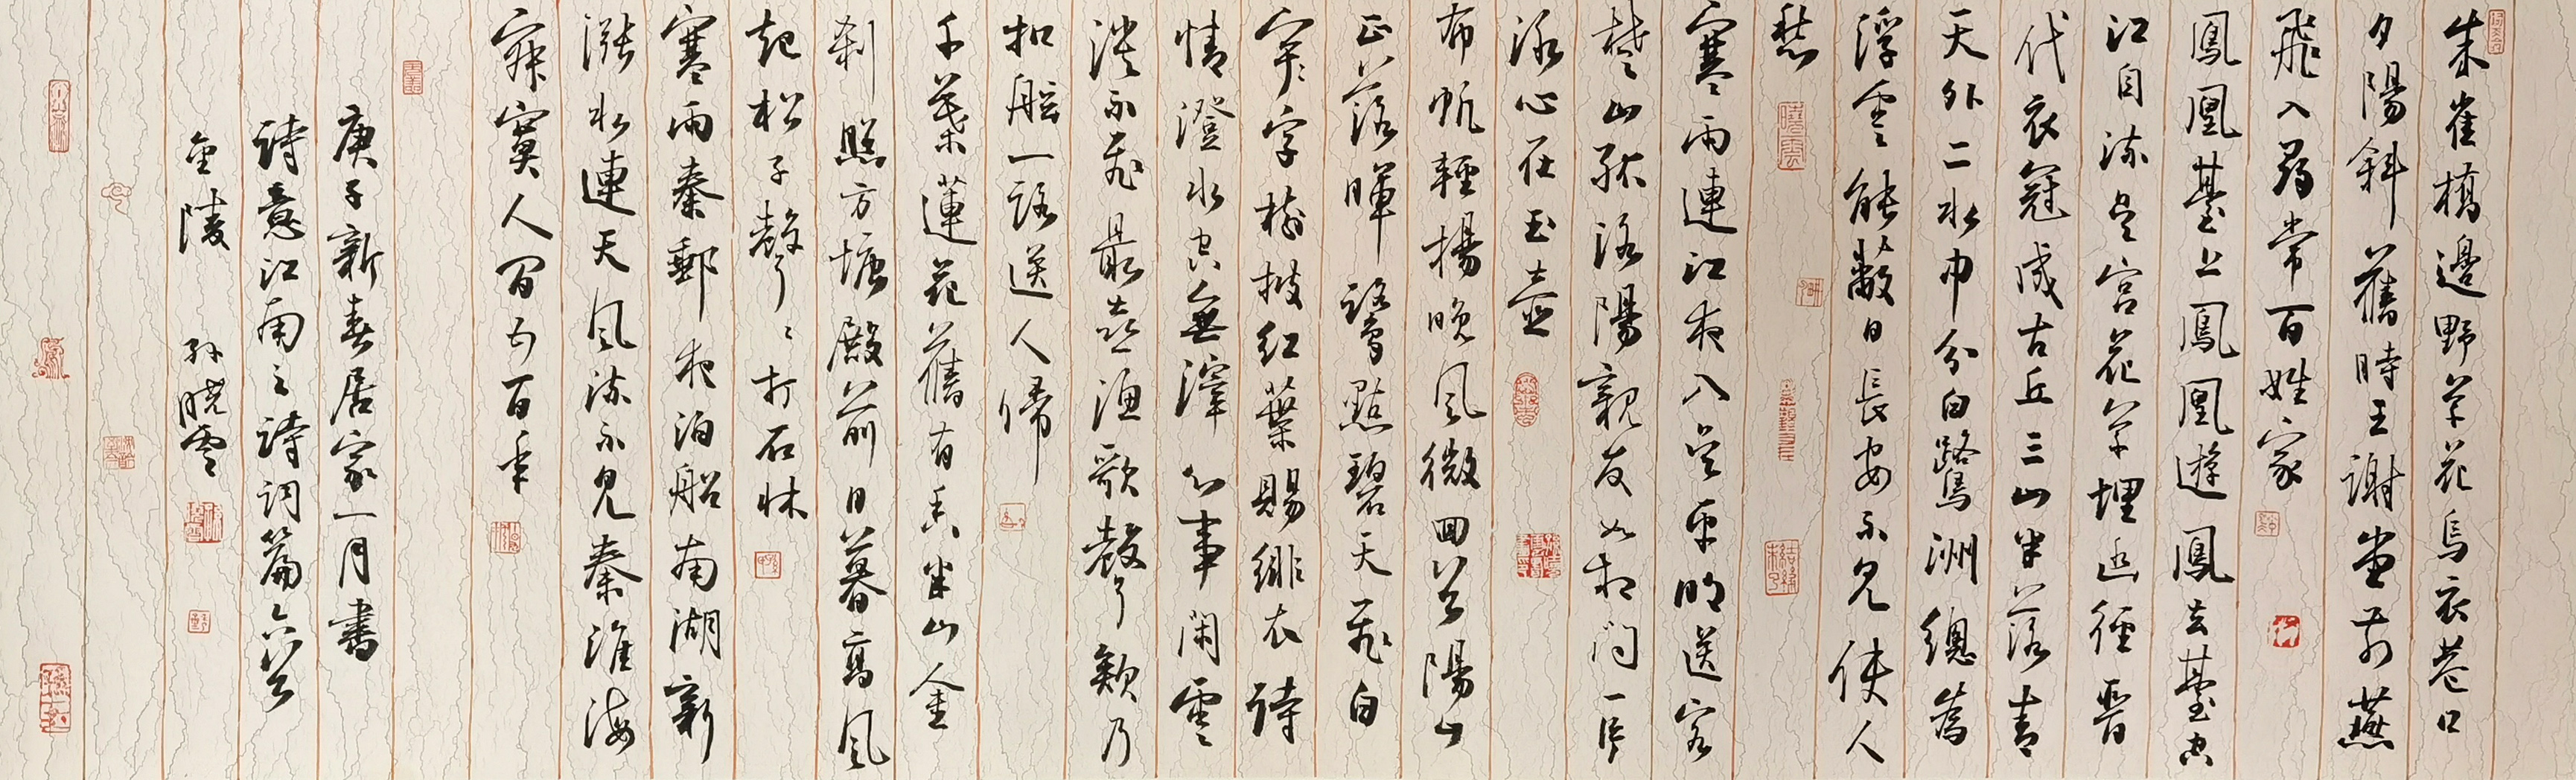 朱雀橋邊野草花烏衣巷口
夕陽斜舊時王謝堂前燕
飛入尋常百姓家
鳳凰臺上鳳凰遊鳳去臺空
江自流吳宮花草埋幽徑晉
代衣冠成古丘三山半落青
天外二水中分白鷺洲總為
浮雲能蔽日長安不見使人
愁
寒雨連江夜入吳平明送客
楚山孤洛陽親友如相問一片
冰心在玉壺
布帆輕揚晚風微回首陽山
正落暉鷺點碧天飛白
字樹披紅葉賜緋衣詩
情澄水空無滓心事閒雲
淡不飛最喜漁歌聲欸乃
扣船一路送人歸
千葉蓮花舊有香半山金
刹照方塘殿前日暮高風
起松子聲〻打石牀
寒雨秦郵夜泊船南湖新
漲水連天風流不見秦淮海
寂寞人間五百年
庚子新春居家一月書
詩意江南之詩詞篇六首
金陵 孫曉雲